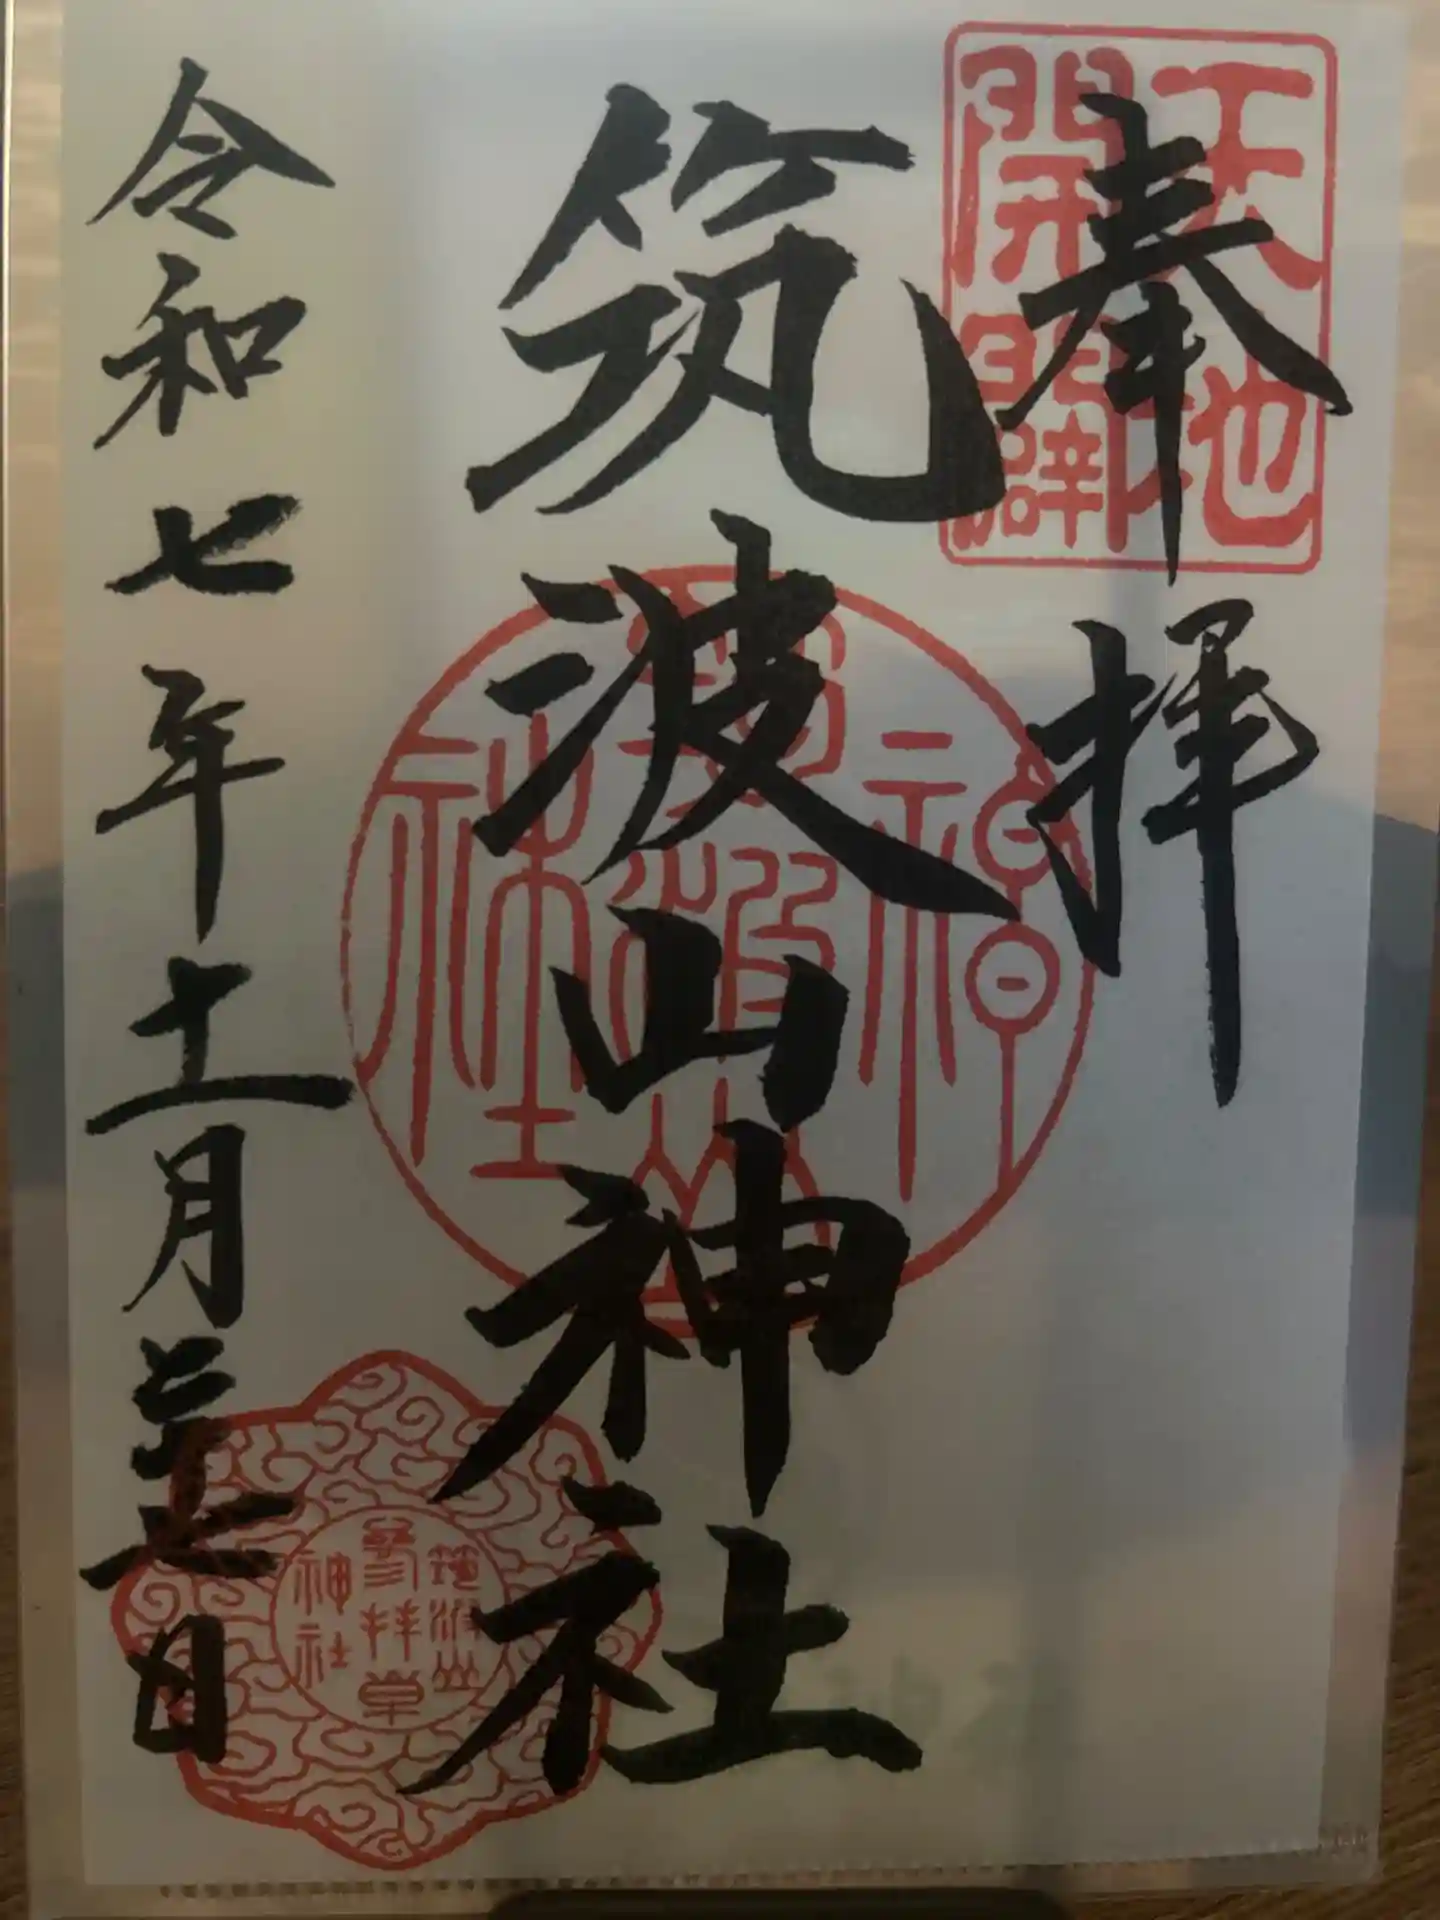 奉拝
天地
開闢
筑波山神社
筑波山
神社
令和七年十一月二十七日
筑波山
参拝章
神社